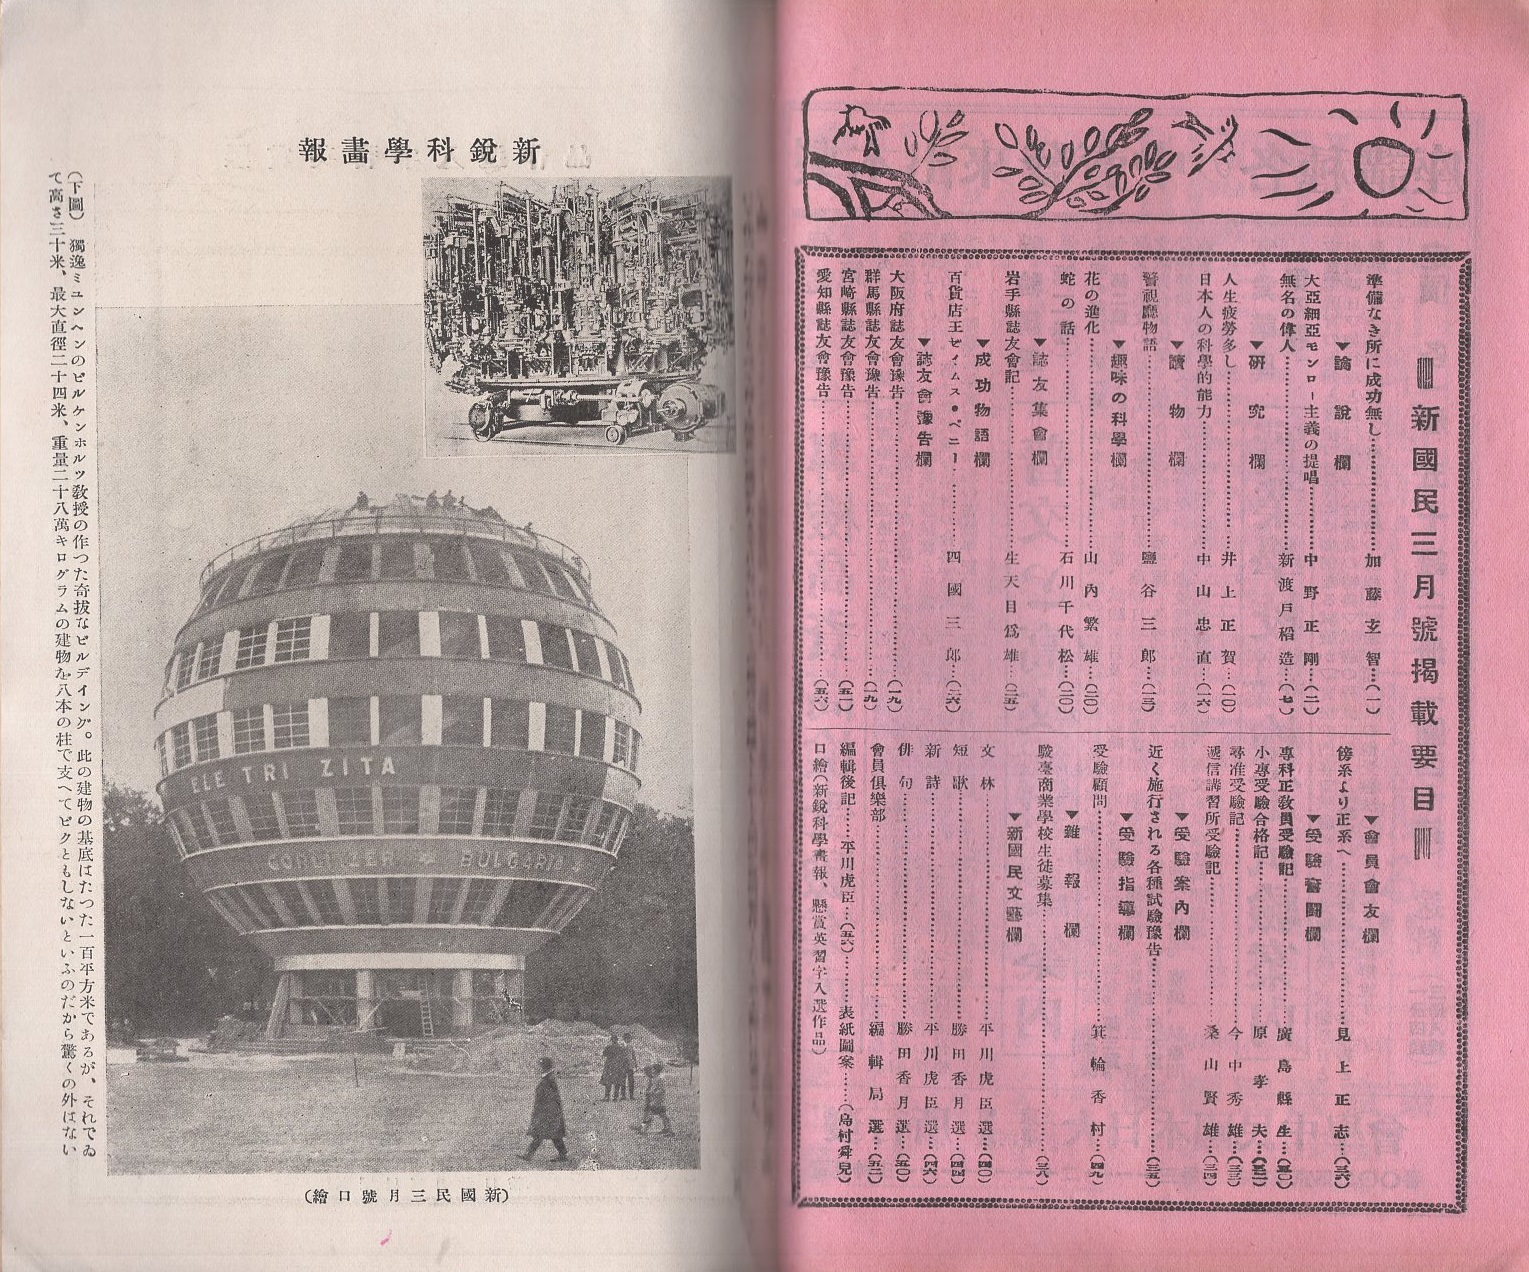 新國民三月號揭載要目
準備なき所に成功無し…加藤玄智…(一)
▼論說欄
大亞細亞モンロー主義の提唱…中野正剛…(二)
無名の偉人…新渡戶稻造…(七)
▼硏究欄
人生疲勞多し…井上正賀…(一〇)
日本人の科學的能力…中山忠直…(一六)
▼讀物欄
警視廳物語…鹽谷三郎…(一三)
▼趣味の科學欄
花の進化…山內繁雄…(二〇)
蛇の話…石川千代松…(二〇)
▼誌友集會欄
岩手縣誌友會記…生天目爲雄…(二五)
▼成功物語欄
百貨店王ゼイムス・ペニー…四國三郎…(二六)
▼誌友會豫告欄
大阪府誌友會豫告…(一九)
群馬縣誌友會豫告…(一九)
宮崎縣誌友會豫告…(五一)
愛知縣誌友會豫告…(五六)
▼會員會友欄
傍系より正系へ…見上正志…(三六)
▼受驗奮鬪欄
專科正敎員受驗記…廣島縣生…(三〇)
小專受驗合格記…原孝夫…(三二)
尋准受驗記…今中秀雄…(三三)
遞信講習所受驗記…桑山賢雄…(三四)
▼受驗案內欄
近く施行される各種試驗豫吿…(三五)
▼受驗指導欄
受驗顧問…箕輪香村…(四九)
▼雜報欄
駿臺商業學校生徒募集…(三八)
▼新國民文藝欄
文林…平川虎臣選…(四〇)
短歌…勝田香月選…(四四)
新詩…平川虎臣選…(四六)
俳句…勝田香月選…(五〇)
會員俱樂部…編輯局選…(五二)
編輯後記…平川虎臣…(五六)…表紙圖案…(島村舜兒)
口繪(新銳科學畫報、懸賞英習字入選作品)
新銳科學畵報
(下圖) 獨逸ミユンヘンのビルケンホルツ敎授の作つた奇拔なビルデイング。此の建物の基底はたつた一百平方米であるが、それでゐ
て高さ三十米、最大直徑二十四米、重量二十八萬キログラムの建物を八本の柱で支へてビクともしないといふのだから驚くの外はない
ELE TRI ZITA
(新國民三月號口繪)